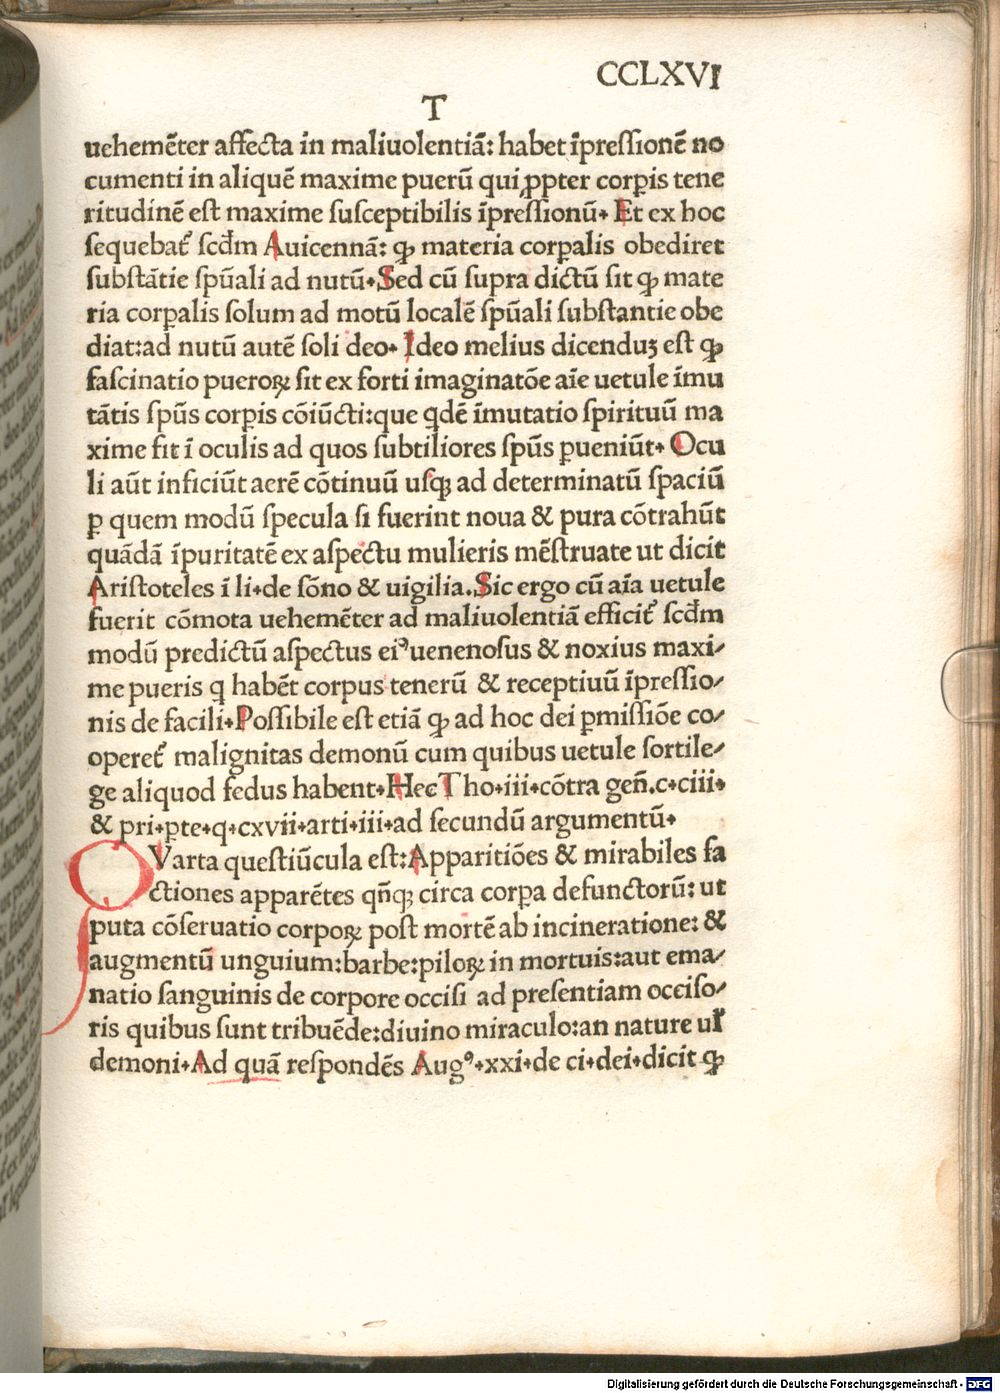 CCLXVI
T
uehemēter affecta in maliuolentiā: habet īpressionē no
cumenti in aliquē maxime puerū qui ꝓpter corꝑis tene
ritudinē est maxime susceptibilis īpressionū. Et ex hoc
sequebat᷑ scd̄m Auicennā: ꝙ materia corꝑalis obediret
substātie spūali ad nutū. Sed cū supra dictū sit ꝙ mate
ria corꝑalis solum ad motū localē spūali substantie obe
diat: ad nutū autē soli deo. Ideo melius dicenduꝫ est ꝙ
fascinatio pueroꝝ sit ex forti imaginatōe aīe uetule īmu
tātis spūs corꝑis cōiūcti: que qdē īmutatio spirituū ma
xime fit ī oculis ad quos subtiliores spūs ꝑueniūt. Ocu
li aūt inficiūt aerē cōtinuū usqꝫ ad determinatū spaciū
ꝑ quem modū specula si fuerint noua & pura cōtrahūt
quādā īpuritatē ex aspectu mulieris mēstruate ut dicit
Aristoteles ī li. de sōno & uigilia. Sic ergo cū aīa uetule
fuerit cōmota uehemēter ad maliuolentiā efficit᷑ scd̄m
modū predictū aspectus eiꝰ uenenosus & noxius maxi-
me pueris q habēt corpus tenerū & receptiuū īpressio-
nis de facili. Possibile est etiā ꝙ ad hoc dei ꝑmissiōe co-
operet᷑ malignitas demonū cum quibus uetule sortile-
ge aliquod fedus habent. Hec Tho. iii. cōtra geñ. c. ciii.
& pri. ꝑte. q. cxvii. arti. iii. ad secundū argumentū.
QVarta questiūcula est: Apparitiōes & mirabiles fa
ctiones apparētes qñqꝫ circa corꝑa defunctorū: ut
puta cōseruatio corpoꝝ post mortē ab incineratione: &
augmentū unguium: barbe: piloꝝ in mortuis: aut ema-
natio sanguinis de corpore occisi ad presentiam occiso-
ris quibus sunt tribuēde: diuino miraculo: an nature ul̄
demoni. Ad quā respondēs Augꝰ. xxi. de ci. dei. dicit ꝙ
Digitalisierung gefördert durch die Deutsche Forschungsgemeinschaft - DFG